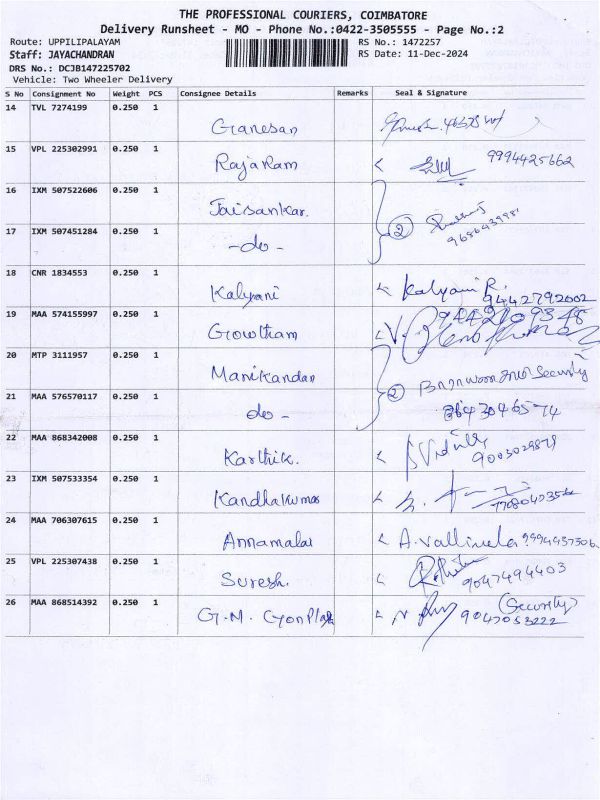 THE PROFESSIONAL COURIERS, COIMBATORE
Delivery Runsheet - MO - Phone No.:0422-3505555 - Page No.:2
Route: UPPILIPALAYAM RS No.: 1472257
Staff: JAYACHANDRAN RS Date: 11-Dec-2024
DRS No.: DCJB147225702
Vehicle: Two Wheeler Delivery
S No Consignment No Weight PCS Consignee Details Remarks Seal & Signature
14 TVL 7274199 0.250 1 Ganesan
15 VPL 225302991 0.250 1 RajaRam 9994425662
16 IXM 507522606 0.250 1 Jaisankar.
17 IXM 507451284 0.250 1 -do- 2
18 CNR 1834553 0.250 1 Kalyani Kalyani R. 9442792002
19 MAA 574155997 0.250 1 Gowtham
20 MTP 3111957 0.250 1 Manikandan
21 MAA 576570117 0.250 1 do - 2 Security
22 MAA 868342008 0.250 1 Karthik. 9003029879
23 IXM 507533354 0.250 1 Kandhakumar
24 MAA 706307615 0.250 1 Annamalai A. Vallinela
25 VPL 225307438 0.250 1 Suresh. 9047494403
26 MAA 868514392 0.250 1 G.M. (Security) 9047053222